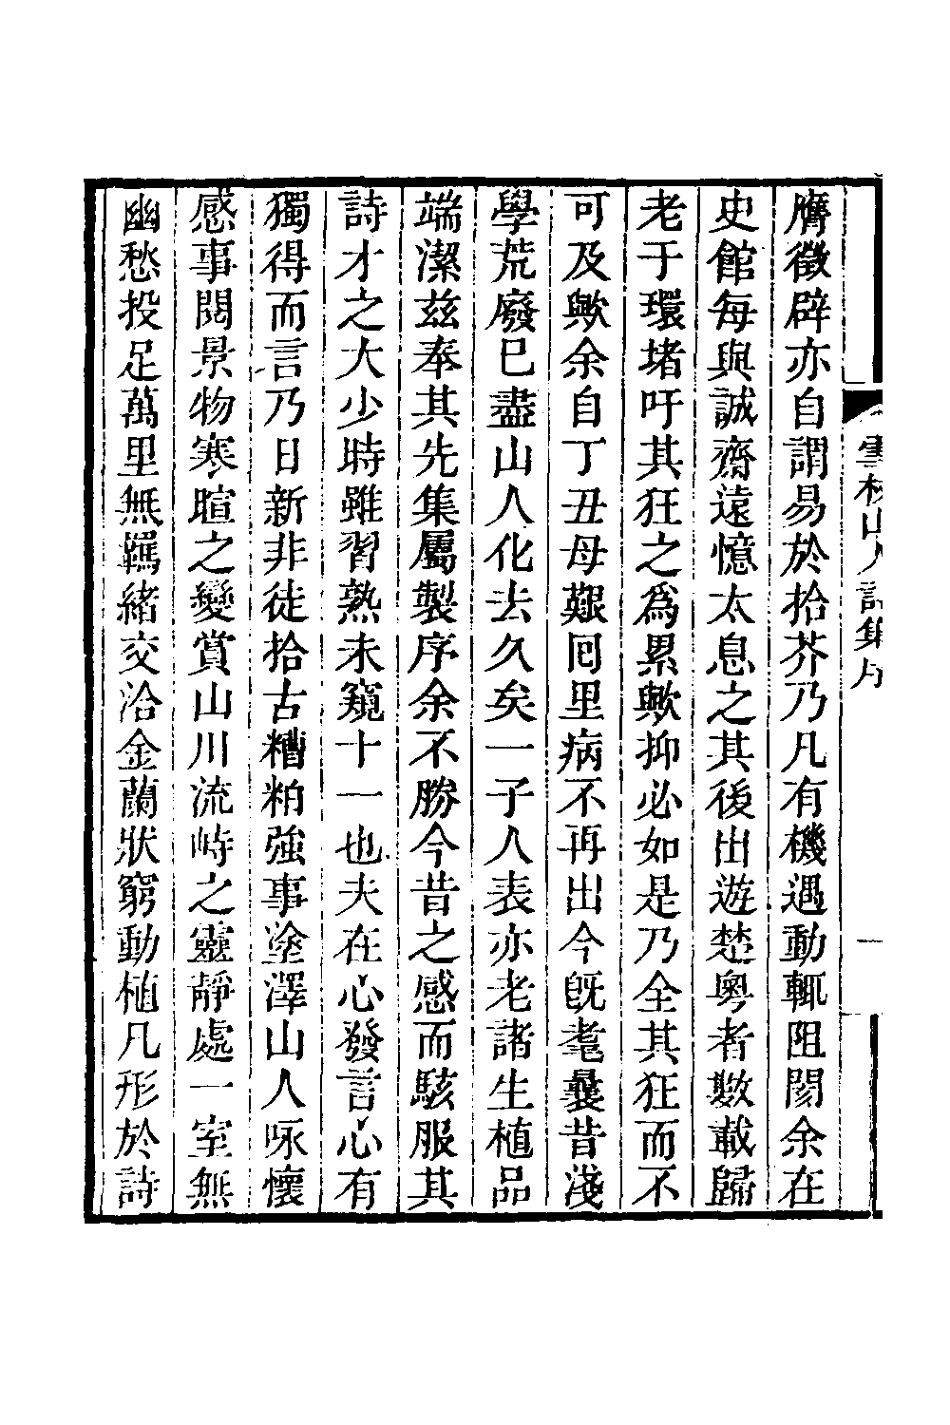 雲林山人詩集序
一
膺徵辟亦自謂易於拾芥乃凡有機遇動輒阻閡余在
史館每與誠齋遠憶太息之其後出遊楚粵者數載歸
老于環堵吁其狂之為累歟抑必如是乃全其狂而不
可及歟余自丁丑母艱囘里病不再出今旣耄曩昔淺
學荒廢已盡山人化去久矣一子人表亦老諸生植品
端潔茲奉其先集屬製序余不勝今昔之感而駭服其
詩才之大少時雖習熟未窺十一也夫在心發言心有
獨得而言乃日新非徒拾古糟粕強事塗澤山人咏懷
感事閱景物寒暄之變賞山川流峙之靈靜處一室無
幽愁投足萬里無羈緒交洽金蘭狀窮動植凡形於詩